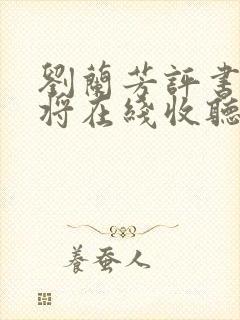 劉蘭芳評書
將在綫收聽
養蚕人